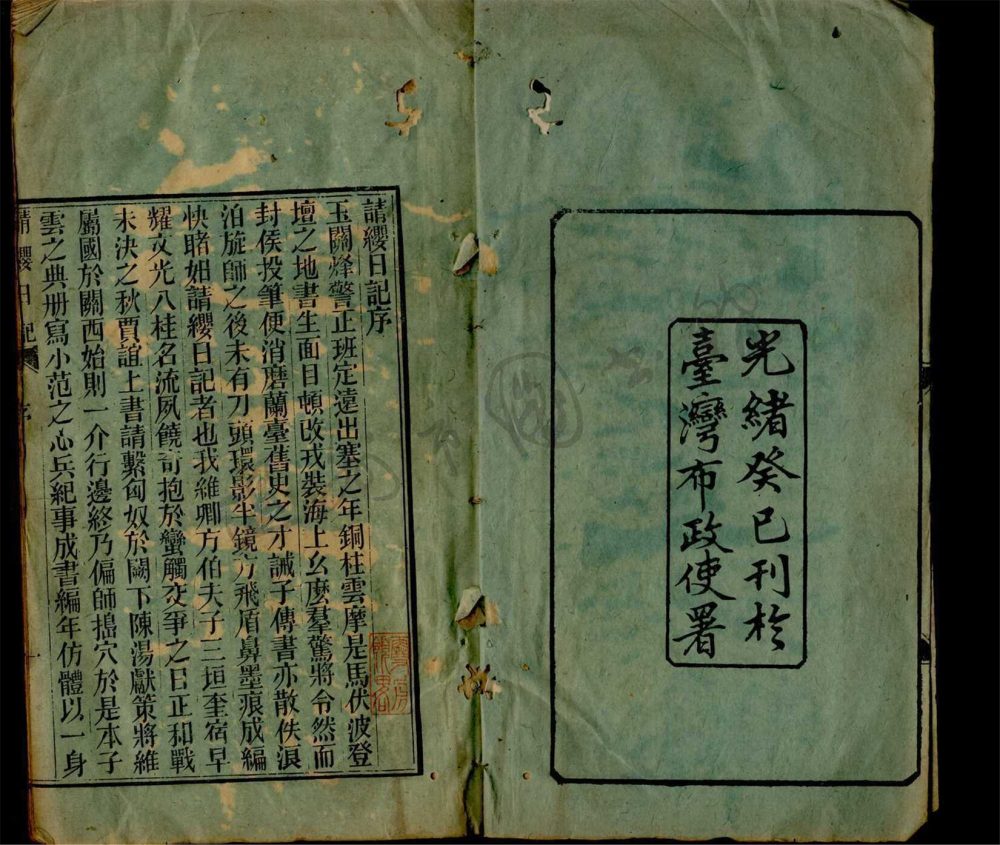 光緒癸巳刊於
臺灣布政使署
請纓日記序
玉關烽警正班定遠出塞之年銅柱雲摩是馬伏波登
壇之地書生面目頓改戎裝海上么麼羣驚將令然而
封侯投筆便消磨蘭臺舊史之才誡子傳書亦散佚浪
泊旋師之後未有刀頭環影半鏡方飛盾鼻墨痕成編
快睹如請纓日記者也我維卿方伯夫子三垣奎宿早
耀文光八桂名流夙饒奇抱於蠻觸交爭之日正和戰
未決之秋賈誼上書請繫匈奴於闕下陳湯獻策將維
屬國於關西始則一介行邊終乃偏師搗穴於是本子
雲之典册寫小范之心兵紀事成書編年仿體以一身
請纓日記 序